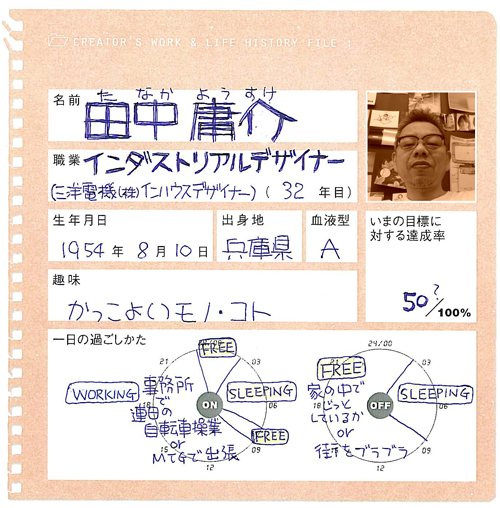 CREATOR'S WORK & LIFE HISTORY FILE :
たなか ようすけ
名前 田中庸介
職業 インダストリアルデザイナー
(三洋電機(株)インハウスデザイナー) ( 32 年目)
生年月日
1954年 8月10日
出身地
兵庫県
血液型
A
いまの目標に
対する達成率
50?/100%
趣味
かっこよいモノ・コト
一日の過ごしかた
FREE
21
03
WORKING
SLEEPING
事務所
で
連日の
自転車操業
or
MTGで出張
18
ON
06
FREE
15
09
12
24/00
21
03
FREE
SLEEPING
家の中で
じっと
しているか
or
街をブラブラ
18
OFF
06
09
12